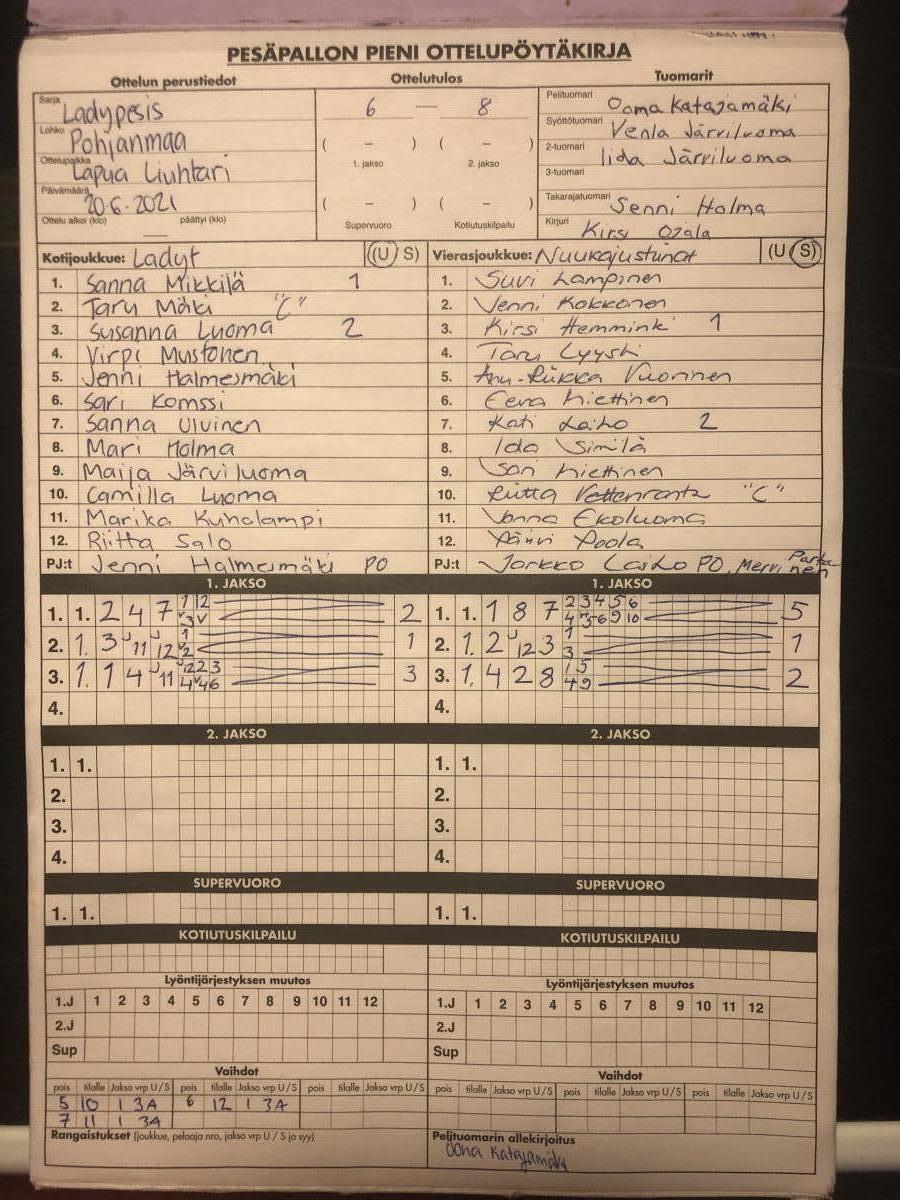 PESÄPALLON PIENI OTTELUPÖYTÄKIRJA
Ottelun perustiedot Ottelutulos Tuomarit
Sarja Ladypesis 6 — 8 Pelituomari Oona Katajamäki
Lohko Pohjanmaa ( – ) ( – ) Syöttötuomari Venla Järviluoma
Ottelupaikka Lapua Liuhtari 1. jakso 2. jakso 2-tuomari Iida Järviluoma
3-tuomari
Päivämäärä 20.6.2021 ( – ) ( – ) Takarajatuomari Senni Holma
Ottelu alkoi (klo) — päättyi (klo) Supervuoro Kotiutuskilpailu Kirjuri Kirsi Ojala
Kotijoukkue: Ladyt (U S) Vierasjoukkue: (U S)
1. Sanna Mikkilä 1 1. Suvi Lampinen
2. Taru Mäki "C" 2. Jenni Kokkonen
3. Susanna Luoma 2 3. Kirsi Hemminki 1
4. Virpi Mustonen 4. Taru Lyyski
5. Jenni Halmesmäki 5. Anu-Riikka Vuorinen
6. Sari Komssi 6. Eeva Liettinen
7. Sanna Ulvinen 7. Kati Laiho 2
8. Mari Holma 8. Ida Similä
9. Maija Järviluoma 9. Sari Liettinen
10. Camilla Luoma 10. Riitta Vettenranta "C"
11. Marika Kuhalampi 11. Jonna Ekoluoma
12. Riitta Salo 12. Päivi Poola
PJ:t Jenni Halmesmäki PO PJ:t Jarkko Laiho PO, Mervi Partanen
1. JAKSO 1. JAKSO
1. 1. 2 4 7 2 1. 1. 1 8 7 2 3 4 5 6 5
2. 1. 3 11 12 1 2. 1. 2 12 3 1 3 1
3. 1. 1 4 11 3 3. 1. 4 2 8 1 5 4 9 2
4. 4.
2. JAKSO 2. JAKSO
1. 1. 1. 1.
2. 2.
3. 3.
4. 4.
SUPERVUORO SUPERVUORO
1. 1. 1. 1.
KOTIUTUSKILPAILU KOTIUTUSKILPAILU
Lyöntijärjestyksen muutos Lyöntijärjestyksen muutos
1.J 1 2 3 4 5 6 7 8 9 10 11 12 1.J 1 2 3 4 5 6 7 8 9 10 11 12
2.J 2.J
Sup Sup
Vaihdot Vaihdot
pois tilalle Jakso vrp U/S pois tilalle Jakso vrp U/S pois tilalle Jakso vrp U/S pois tilalle Jakso vrp U/S pois tilalle Jakso vrp U/S pois tilalle Jakso vrp U/S
5 10 1 3A 6 12 1 3A
7 11 1 3A
Rangaistukset (joukkue, pelaaja nro, jakso vrp U / S ja syy) Pelituomarin allekirjoitus
Oona Katajamäki